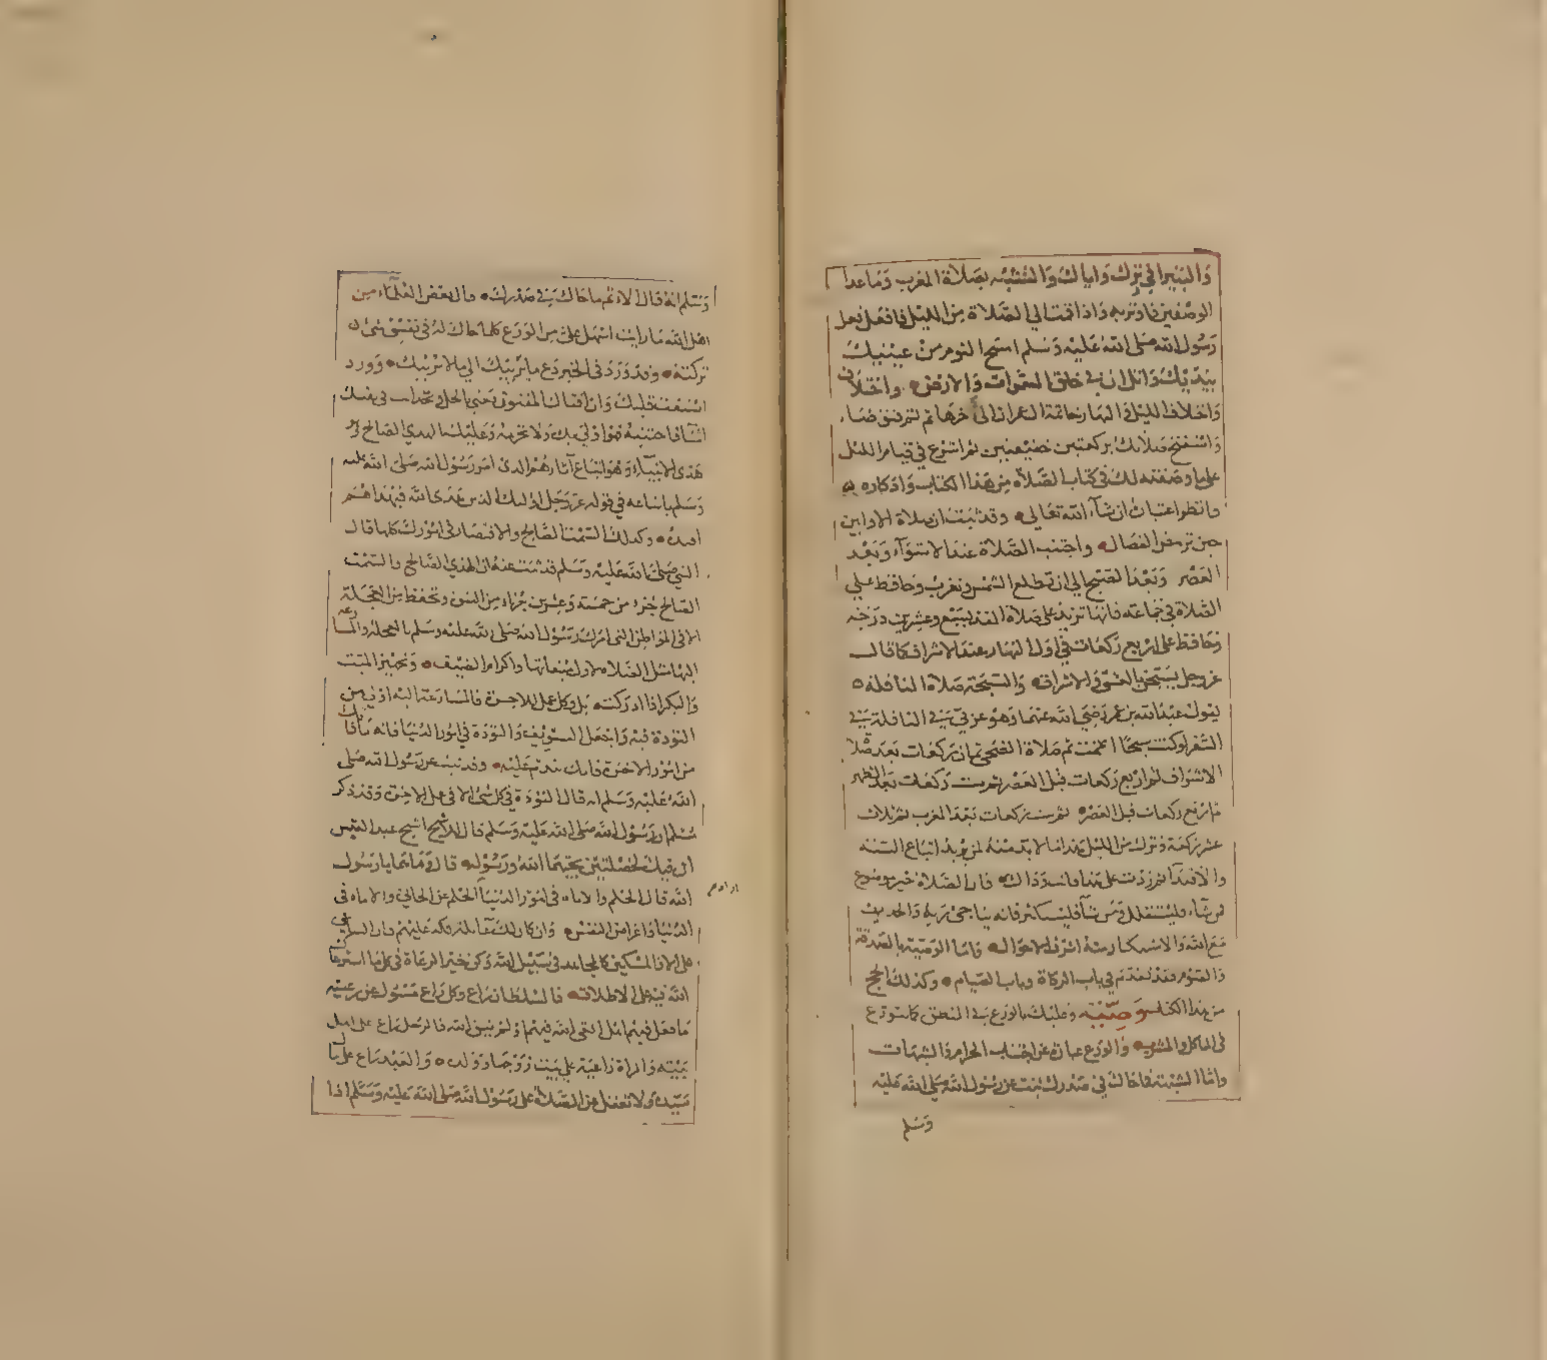 والبتيرا في وترك واياك والتشبه بصلاة المغرب وما عدا
الوصفين فاوتر به واذا قمت الي الصلاة من الليل فافعل فعل
رسول الله صلى الله عليه وسلم امسح النوم من عينيك
بيديك واتل ان في خلق السموات والارض واختلاف
واختلاف الليل والنهار خاتمة ال عمران الى آخرها ثم توضا
واستفتح صلاتك بركعتين خفيفتين ثم اشرع في قيام الليل
على ما وصفته لك في كتاب الصلاة من هذا الكتاب واذكاره
وانظر اعتباره ان شاء الله تعالى وقد ثبت ان صلاة الاوابين
حين ترمض الفصال واجتنب الصلاة عند الاستواء وبعد
العصر وبعد الصبح الي ان تطلع الشمس وتغرب وحافظ علي
الصلاة في جماعة فانها تزيد على صلاة الفذ بسبع وعشرين درجه
وحافظ على اربع ركعات في اول النهار عند الاشراف كما قال
عز وجل يسبحن بالعشي والاشراق والسبحة صلاة النافلة
يقول عبد الله بن عمر رضي الله عنهما وهو عربي في النافلة في
السفر لو كنت مسبحا اتممت ثم صلاة الضحى ثمان ركعات بعد صلاة
الاشراف ثم اربع ركعات قبل الظهر ثم ست ركعات بعد الظهر
ثم اربع ركعات قبل العصر ثم ست ركعات بعد المغرب ثم ثلاث
عشر ركعة وترك من الليل هذا ما لا بد منه لمن يريد اتباع السنه
والاقتدا فان زدت على هذا فانت وذاك فان الصلاة خير موضوع
من شاء فليستقلل ومن شاء فليستكثر فانه يناجي ربه والحديث
مع الله والاستكثار منه اشرف الاحوال واما الوصية بالصدقة
والصوم فقد تقدم في باب الزكاة وباب الصيام وكذلك الحج
من هذا الكتاب وصيّة وعليك بالورع في المنطق كما تتورع
في الماكل والمشرب والورع عبارة عن اجتناب الحرام والشبهات
واما الشبهة فما حاك في صدرك ثبت عن رسول الله صلى الله عليه
وسلم
وسلم انه قال الاثم ما حاك في صدرك وقال بعض العلماء من
اهل الله ما رايت اسهل علي من الورع كلما حاك له في نفسي شيء
تركته وقد ورد في الخبر دع ما يريبك الي ما لا يريبك وورد
استفت قلبك وان افتاك المفتون يعني بالحل وتجد انت في نفسك
هدي الانبياء وهو اتباع آثارهم الذي امر رسول الله صلى الله عليه
وسلم باتباعه في قوله عز وجل اوليك الذين هدى الله فبهداهم
اقتده وكذلك السمت الصالح والاقتصاد في امورك كلها قال
النبي صلى الله عليه وسلم قد ثبت عنه ان الهدي الصالح والسمت
الصالح جزء من خمسة وعشرين جزءا من النبوة وتحفظ من العجلة
الا في المواطن التي امرك رسول الله صلى الله عليه وسلم بالعجلة والمسارعة
اليها مثل الصلاه لاول ميقاتها واكرام الضيف وتجهيز الميت
والبكر اذا ادركت بل وكل عمل للاخرة فالمسارعة اليه اولي من
التؤدة فيه واجعل التسويف والتؤدة في امور الدنيا فانه ما فاتك
من امور الاخرة فانك تندم عليه وقد ثبت عن رسول الله صلى
الله عليه وسلم انه قال التؤدة في كل شيء الا في عمل الاخرة وقد ذكر
مسلم ان رسول الله صلى الله عليه وسلم قال للاشج اشج عبد القيس
ان فيك لخصلتين يحبهما الله ورسوله قال وما هما يا رسول
الله قال الحلم والاناه في امور الدنيا الحلم عن الجاني والاناه في
الدنيا واغراض النفس وان كان لك عايلة فكد عليهم فان الساعي
على الارملة والمسكين كالمجاهد في سبيل الله وكن خير الرعاة في كل ما استرعاك
الله فيه على الاطلاق فالسلطان راع وكل راع مسؤل عن رعيته
ما فعل فيهم هل اتقى الله فيهم او لم يتق الله فالرجل راع على اهل
بيته والمراة راعية علي بيت زوجها وولده والعبد راع على مال
سيده ولا تغفل عن الصلاة على رسول الله صلى الله عليه وسلم اذا